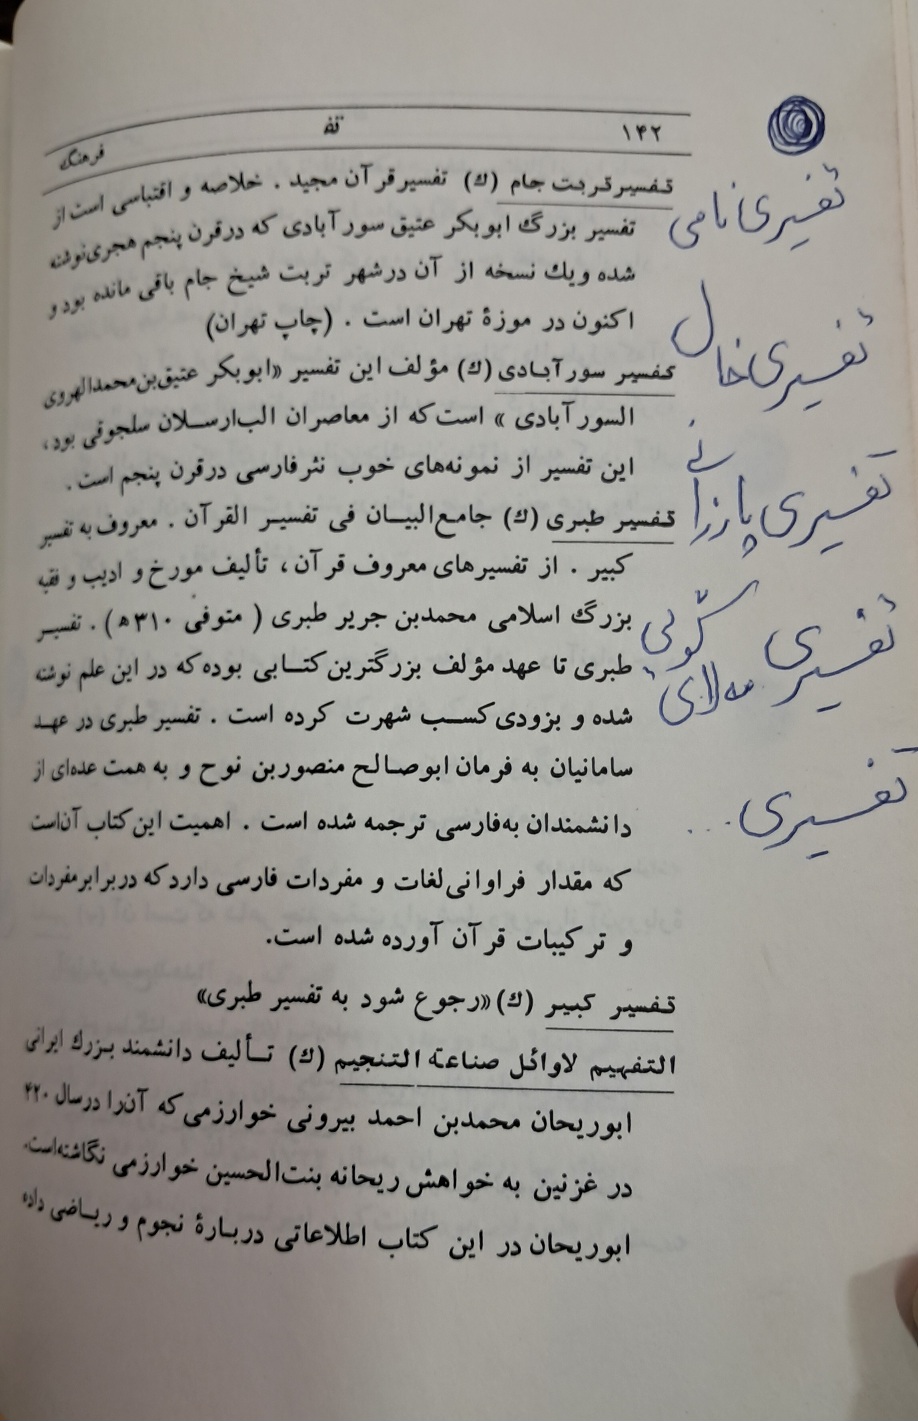 ۱۴۲
تف
فرهنگ
تفسیر تربت جام (ك) تفسیر قرآن مجید . خلاصه و اقتباسی است از
تفسیر بزرگ ابوبکر عتیق سورآبادی که در قرن پنجم هجری نوشته
شده و یك نسخه از آن در شهر تربت شیخ جام باقی مانده بود و
اکنون در موزهٔ تهران است . (چاپ تهران)
تفسیر سورآبادی (ك) مؤلف این تفسیر «ابوبکر عتیق بن محمد الهروی
السورآبادی » است که از معاصران الب ارسلان سلجوقی بود ،
این تفسیر از نمونه‌های خوب نثر فارسی در قرن پنجم است .
تفسیر طبری (ك) جامع البیان فی تفسیر القرآن . معروف به تفسیر
کبیر . از تفسیرهای معروف قرآن ، تألیف مورخ و ادیب و فقیه
بزرگ اسلامی محمدبن جریر طبری ( متوفی ۳۱۰ ه) . تفسیر
طبری تا عهد مؤلف بزرگترین کتابی بوده که در این علم نوشته
شده و بزودی کسب شهرت کرده است . تفسیر طبری در عهد
سامانیان به فرمان ابوصالح منصوربن نوح و به همت عده‌ای از
دانشمندان به‌فارسی ترجمه شده است . اهمیت این کتاب آن‌است
که مقدار فراوانی لغات و مفردات فارسی دارد که در برابر مفردات
و ترکیبات قرآن آورده شده است.
تفسیر کبیر (ك) «رجوع شود به تفسیر طبری»
التفهیم لاوائل صناعة التنجیم (ك) تألیف دانشمند بزرك ایرانی
ابوریحان محمدبن احمد بیرونی خوارزمی که آن‌را در سال ۴۲۰
در غزنین به خواهش ریحانه بنت‌الحسین خوارزمی نگاشته‌است.
ابوریحان در این کتاب اطلاعاتی دربارهٔ نجوم و ریاضی داده
تفسیری نامی
تفسیری خال
تفسیری پازرانی
تفسیری
مه‌لای
تفسیری ...